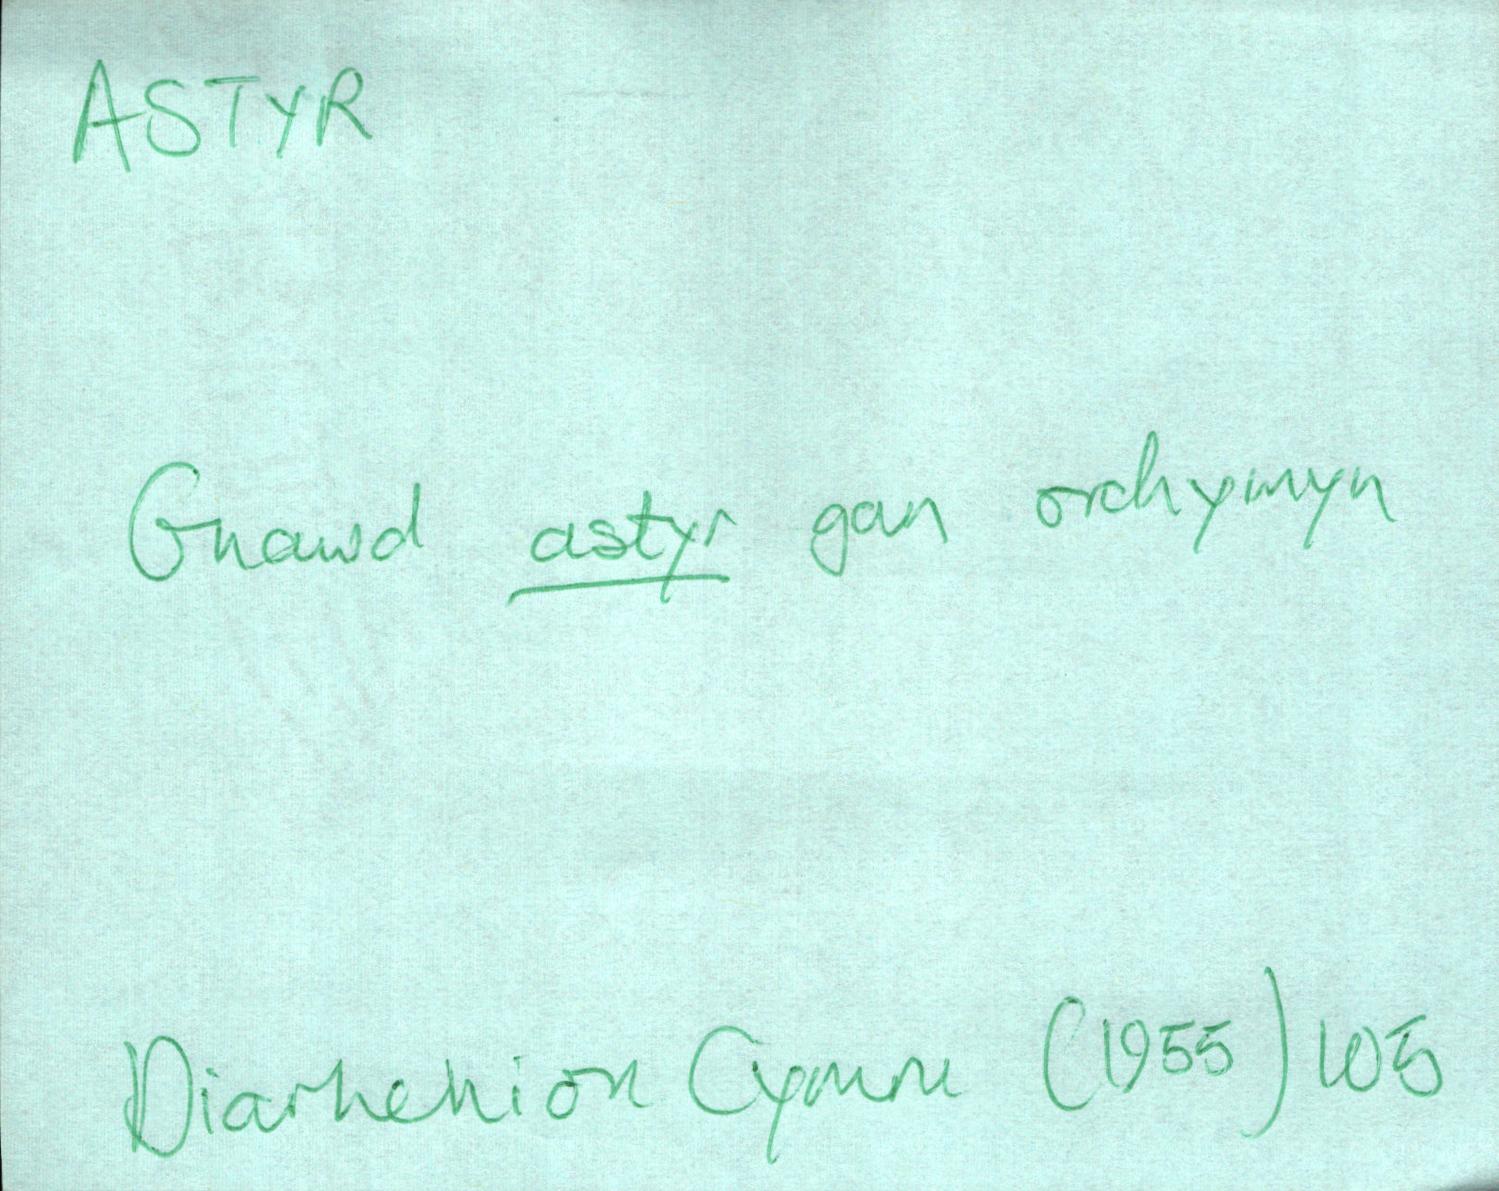 ASTYR
Gnawd astyr gan orchymyn
Diarhebion Cymru (1955) 105